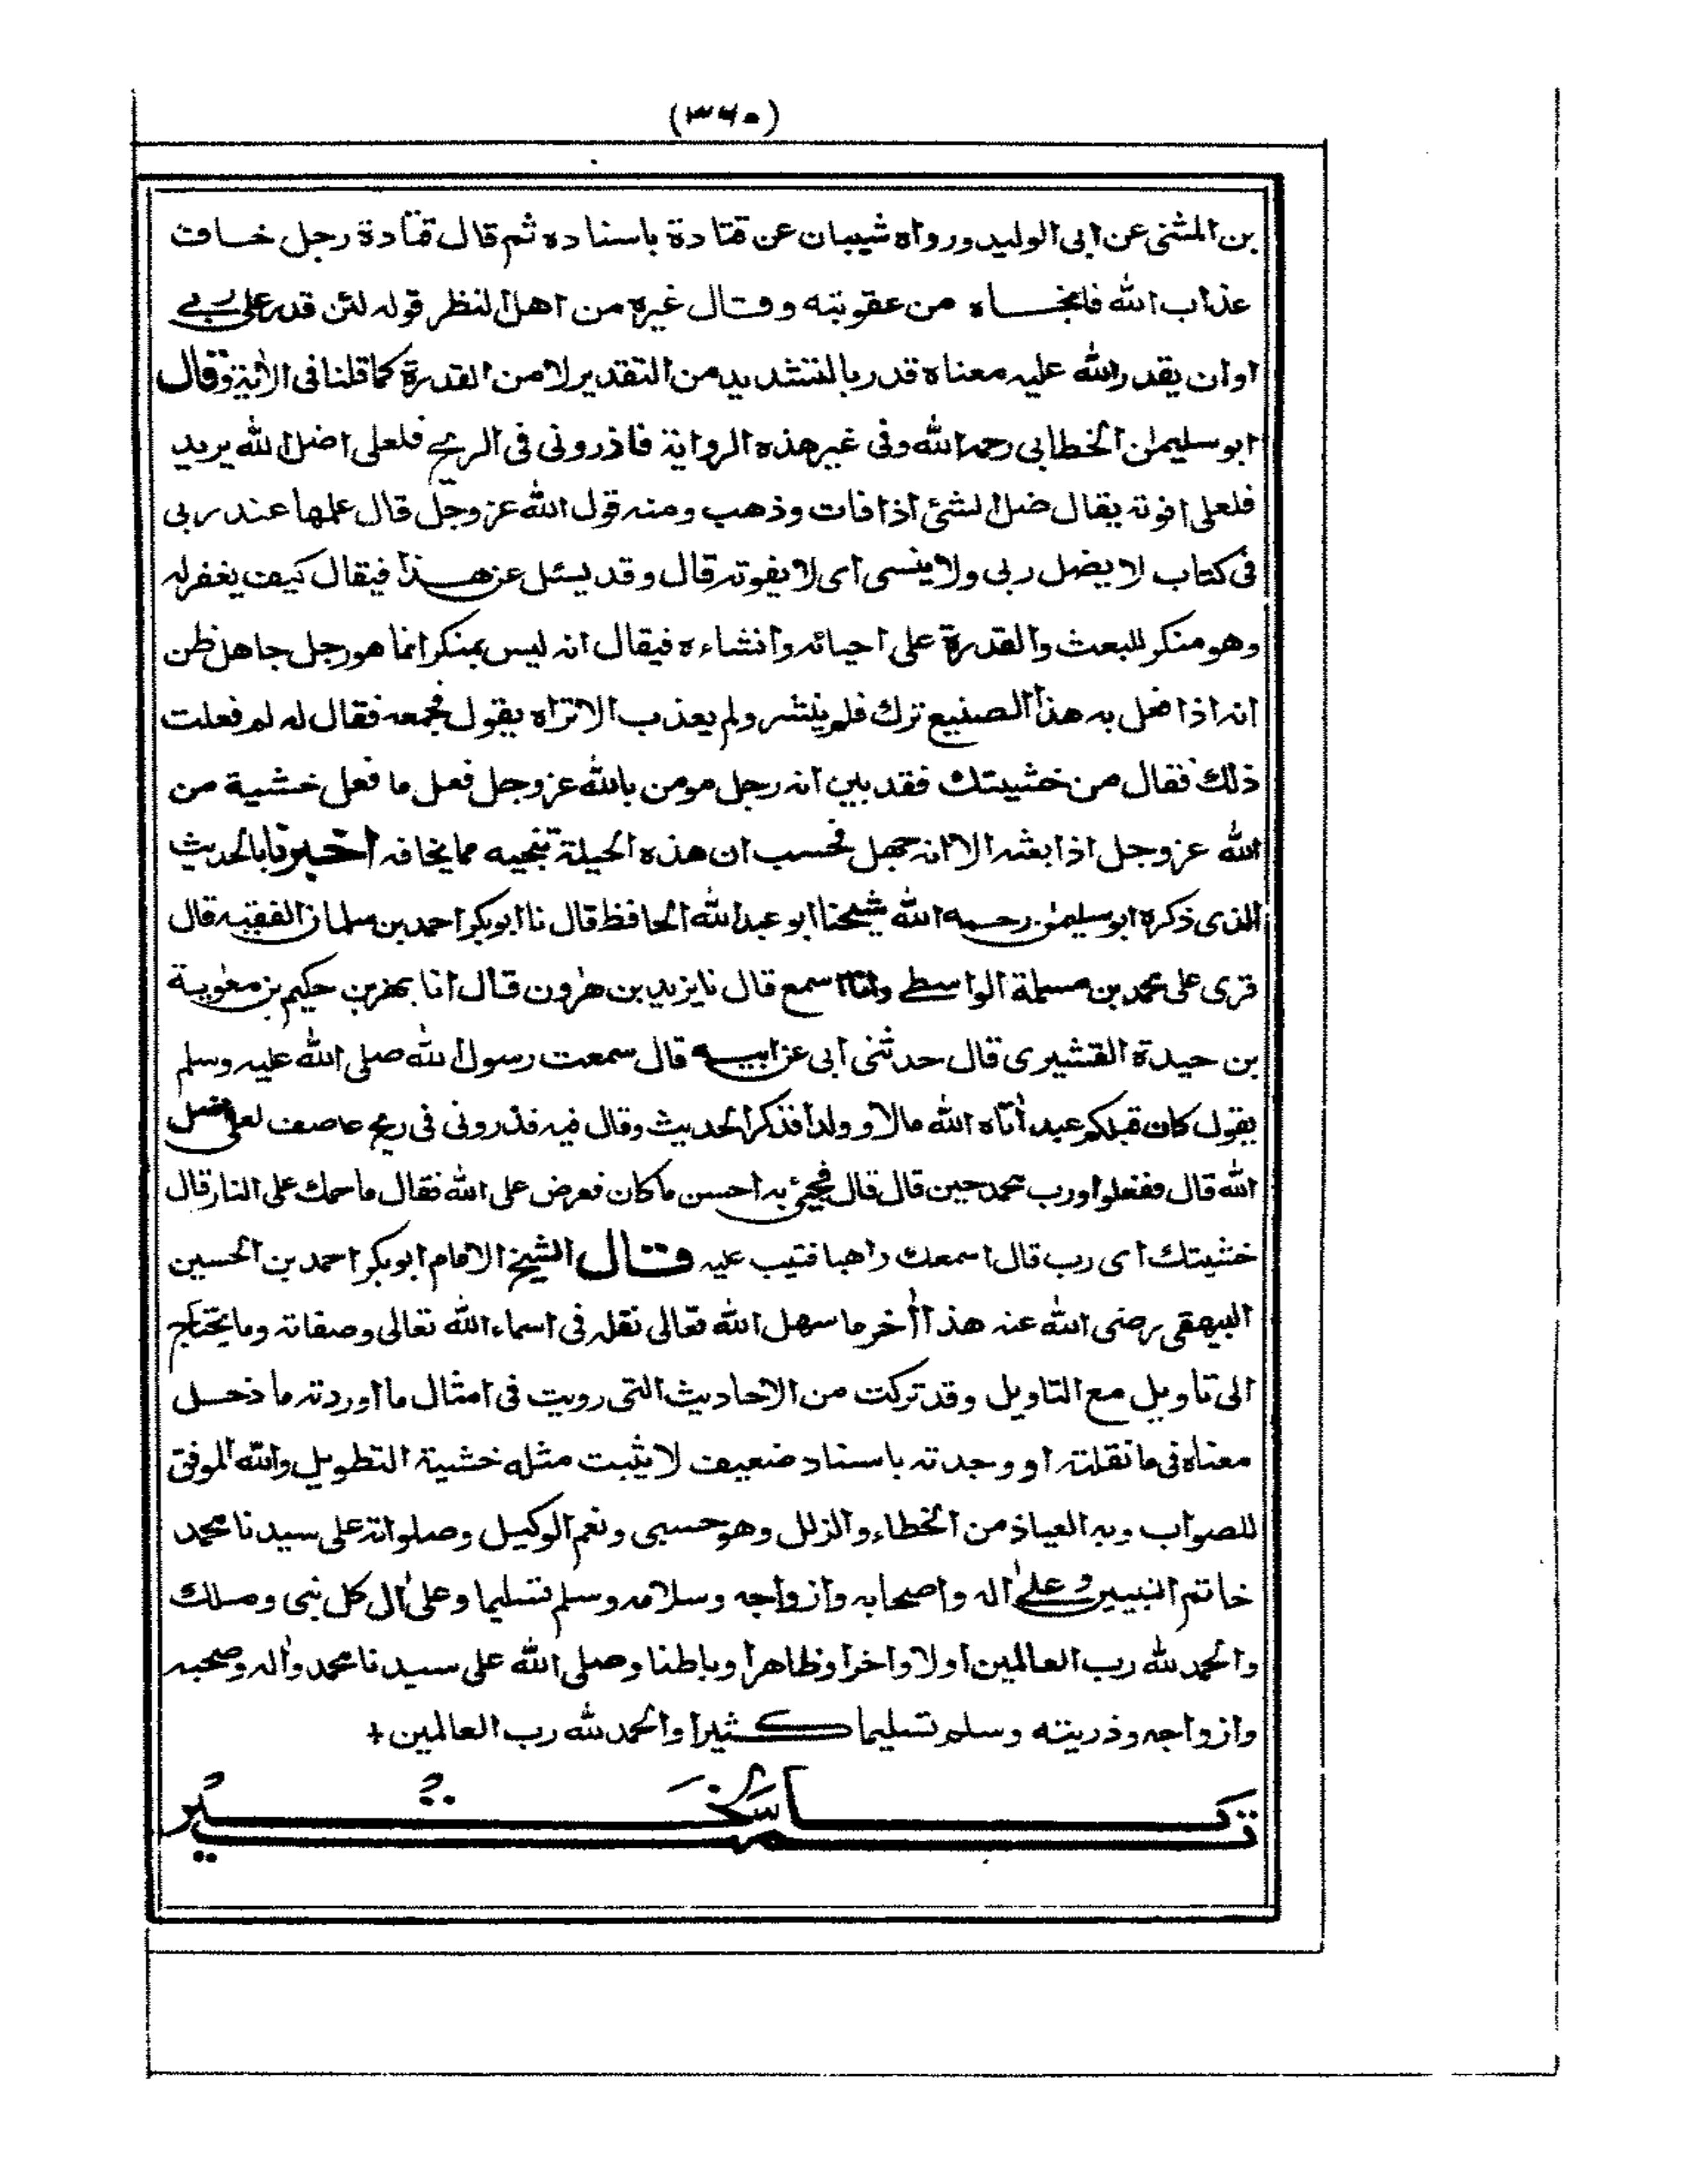 (٣٦٠)
بن المثنى عن ابى الوليد ورواه شيبان عن قتادة باسناده ثم قال قتادة رجل خاف
عذاب الله فانجاه من عقوبته وقال غيره من اهل النظر قوله لئن قدر على ربي
اوان يقدر الله عليه معناه قدر بالتشديد من التقدير لا من القدرة كما قلنا فى الاٰية وقال
ابو سليمٰن الخطابى رحمه الله وفى غير هذه الرواية فاذرونى فى الريح فلعلى اضل الله يريد
فلعلى افوته يقال ضل الشئ اذا فات وذهب ومنه قول الله عز وجل قال علمها عند ربى
فى كتاب لا يضل ربى ولا ينسى اى لا يفوته قال وقد يسئل عن هذا فيقال كيف يغفر له
وهو منكر للبعث والقدرة على احيائه وانشاءه فيقال انه ليس بمنكر انما هو رجل جاهل ظن
انه اذا فعل به هذا الصنيع ترك فلم ينشر ولم يعذب الا تراه يقول فجمعه فقال له لم فعلت
ذلك فقال من خشيتك فقد بين انه رجل مومن بالله عز وجل فعل ما فعل خشية من
الله عز وجل اذا بعثه الا انه جهل فحسب ان هذه الحيلة تنجيه مما يخافه اخبرنا بالحديث
الذى ذكره ابو سليمٰن رحمه الله شيخنا ابو عبد الله الحافظ قال نا ابو بكر احمد بن سلمان الفقيه قال
قرى على محمد بن مسلمة الواسطے وانا اسمع قال نا يزيد بن هٰرون قال انا بهز بن حكيم بن معٰوية
بن حيدة القشيرى قال حدثنى ابى عن ابيه قال سمعت رسول الله صلى الله عليه وسلم
يقول كان قبلكم عبد اٰتاه الله مالا وولدا فذكر الحديث وقال فيه فذرونى فى ريح عاصف لعلى اضل
الله قال ففعلوا ورب محمد حين قال قال فجئ به احسن ما كان فعرض على الله فقال ما حملك على النار قال
خشيتك اى رب قال اسمعك راهبا فتيب عليه قال الشيخ الامام ابو بكر احمد بن الحسين
البيهقى رضى الله عنه هذا اٰخر ما سهل الله تعالى نقله فى اسماء الله تعالى وصفاته وما يحتاج
الى تاويل مع التاويل وقد تركت من الاحاديث التى رويت فى امثال ما اوردته ما دخل
معناه فى ما نقلته او وجدته باسناد ضعيف لا يثبت مثله خشية التطويل والله الموفق
للصواب وبه العياذ من الخطاء والزلل وهو حسبى ونعم الوكيل وصلواته على سيدنا محمد
خاتم النبيين وعلےٰ اله واصحابه وازواجه وسلامه وسلم تسليما وعلى اٰل كل نبى وملك
والحمد لله رب العالمين اولا واخرا وظاهرا وباطنا وصلى الله على سيدنا محمد واٰله وصحبه
وازواجه وذريته وسلم تسليما كثيرا والحمد لله رب العالمين +